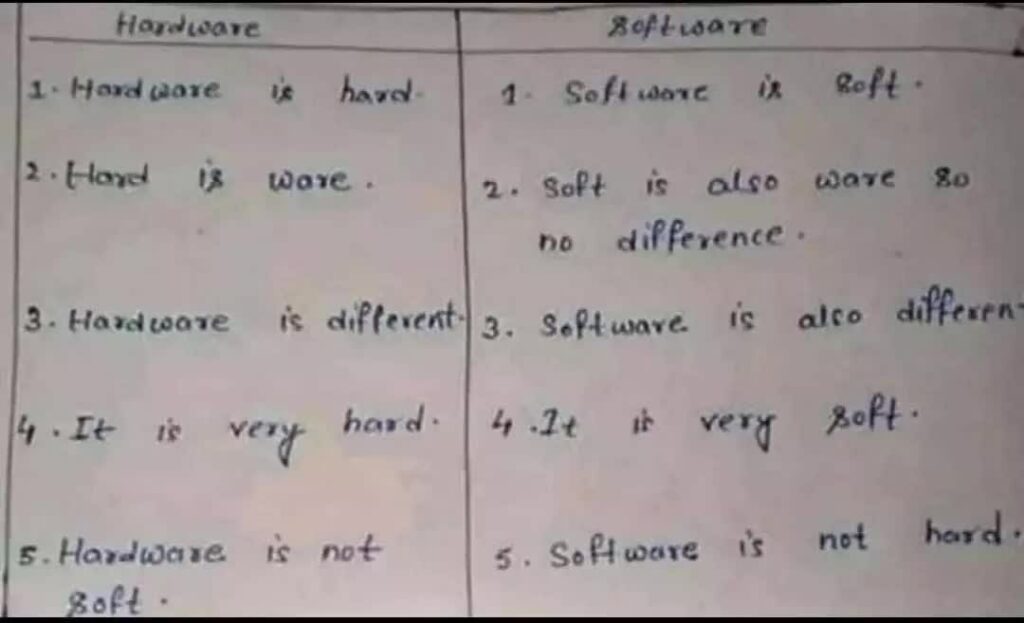 Hardware
Software
1. Hardware is hard.
1. Software is soft.
2. Hard is ware.
2. Soft is also ware so
no difference.
3. Hardware is different.
3. Software is also differen
4. It is very hard.
4. It is very soft.
5. Hardware is not
soft.
5. Software is not hard.